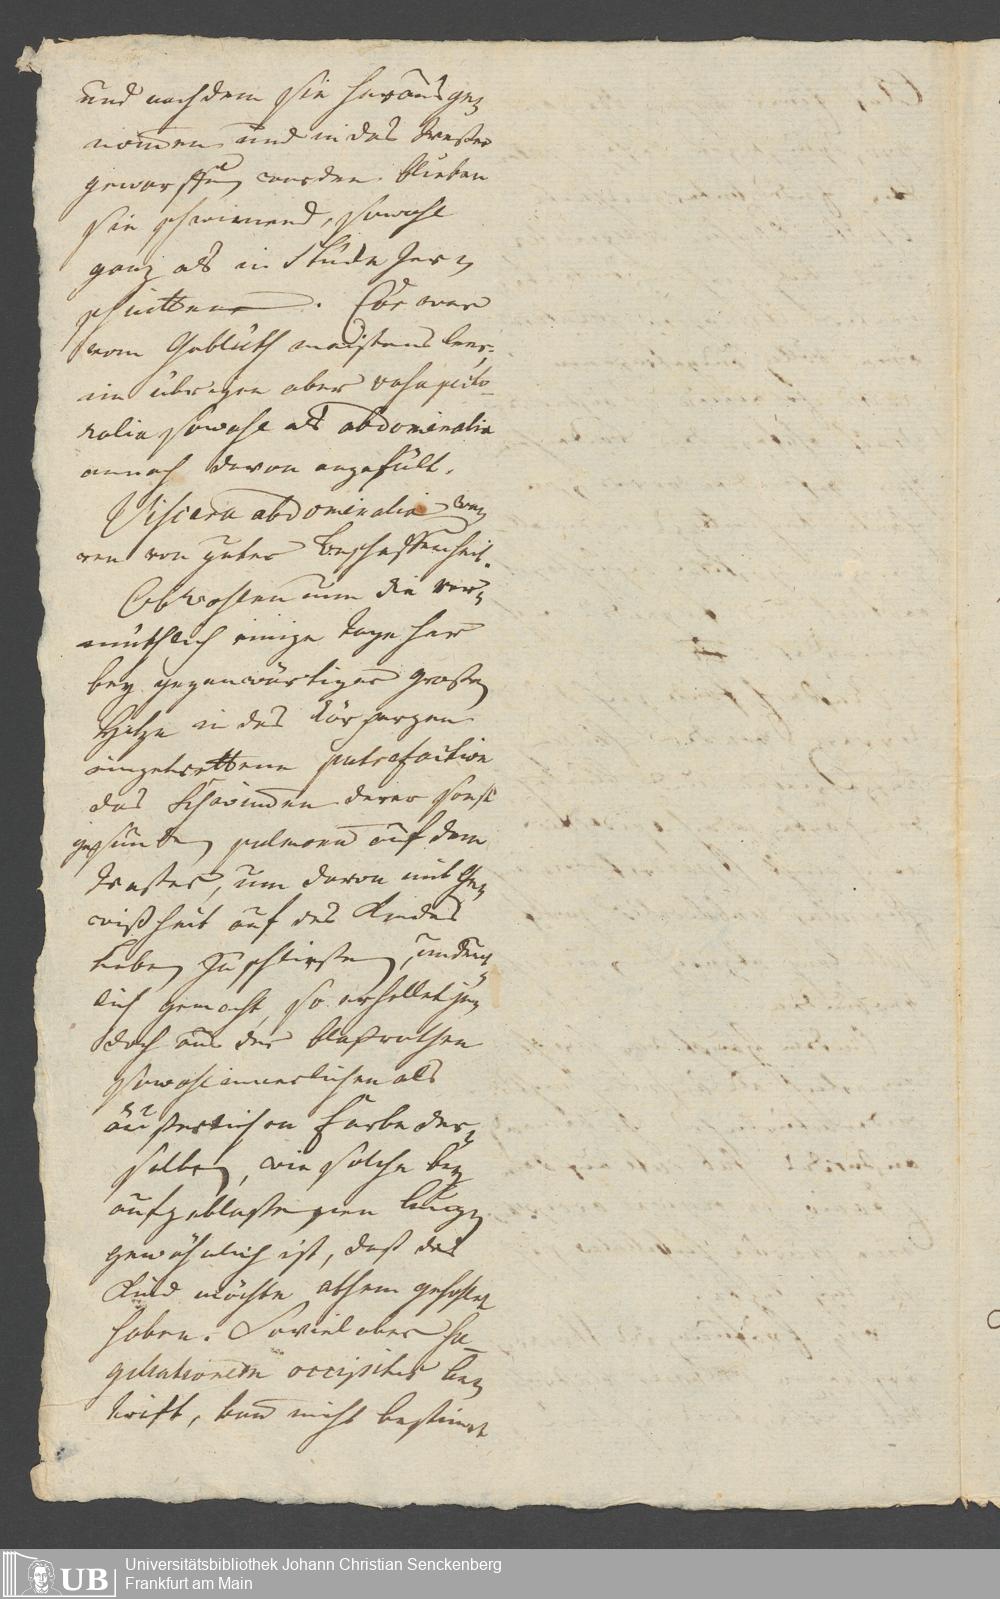 und nachdem sie herausge-
nom̄en und in das Wasser
geworffen worden. blieben
sie schwim̄end, sowohl
ganz als in Stücke zer-
schnitten. Cor war
vom Geblüth meistens leer,
im übrigen aber vasa pecto-
ralia sowohl als abdominalia
annoch davon angefüllt.
Viscera abdominalia wa-
ren von guter Beschaffenheit.
Obwohlen nun die ver-
muthlich einige tage her
bey gegenwärtiger großen
Hitze in das Körpergen
eingetrettene putrefaction
das Schwim̄en derer sonst
gesunden pulmonum auf dem
Wasser, um davon mit Ge-
wißheit auf des Kindes
Leben zu schließen, undeut-
lich gemacht, so erhellet je-
doch aus der blaßrothen
sowohl innerlichen als
äußerlichen Farbe der-
selben, wie solche bey
aufgeblaßenen Lungen
gewöhnlich ist, daß das
Kind möchte athem gehohlet
haben. Soviel aber Su-
gillationem occipitis be-
trift, kan nicht bestimt
Universitätsbibliothek Johann Christian Senckenberg
Frankfurt am Main
UB